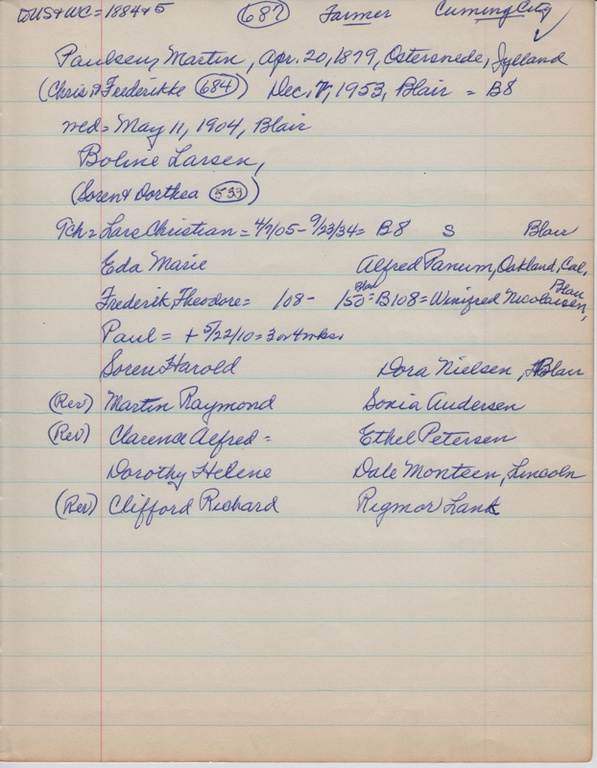 DUS & WC = 1884 & 5 687 Farmer Cuming City ✓
Paulsen, Martin, Apr. 20, 1879, Ostersnede, Jylland
(Chris & Frederikke 684) Dec. 7, 1953, Blair = B8
md = May 11, 1904, Blair
Boline Larsen,
(Soren & Dorthea 533)
7ch = Lars Christian = 4/7/05 - 9/23/34 = B8 S Blair
Eda Marie Alfred Panum, Oakland, Cal.
Frederik Theodore = /08 - /50 = Blair B108 = Winifred Nicolaisen, Blair
Paul = + 5/22/10 = 3 or 4 wks.
Soren Harold Dora Nielsen, Blair
(Rev) Martin Raymond Sonia Andersen
(Rev) Clarence Alfred = Ethel Petersen
Dorothy Helene Dale Monteen, Lincoln
(Rev) Clifford Richard Rigmor Lank